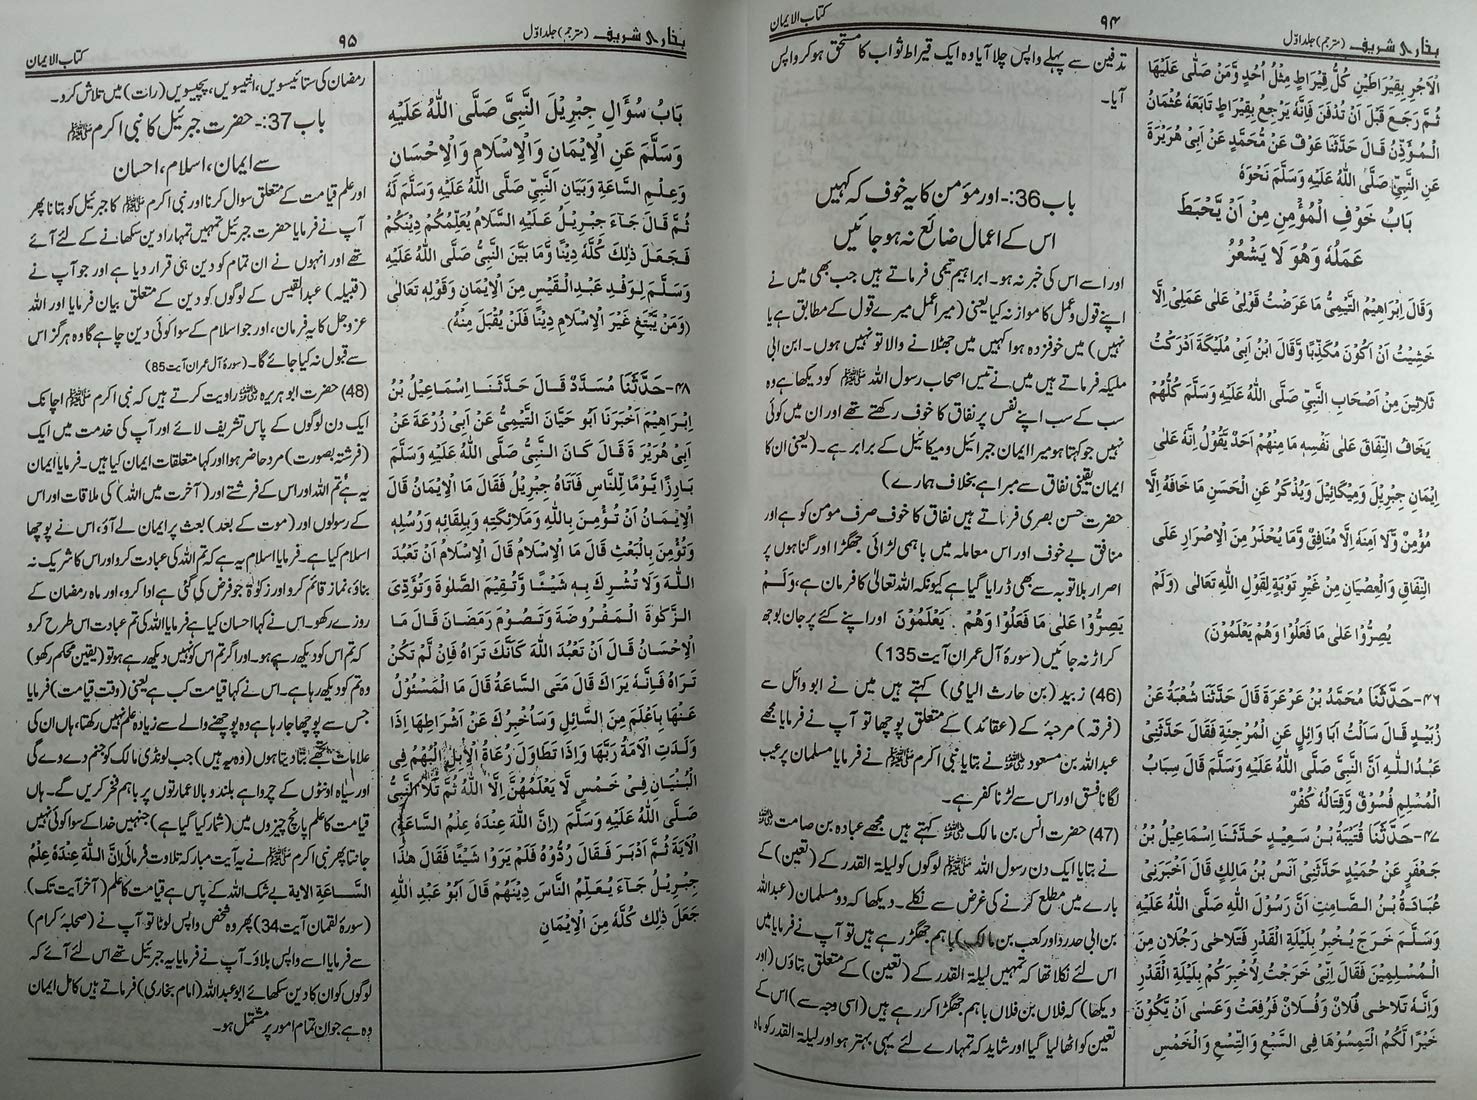 بخاری شریف (مترجم) جلد اوّل
۹۴
کتاب الایمان
الْاَجْرِ بِقِيْرَاطَيْنِ كُلُّ قِيْرَاطٍ مِثْلُ اُحُدٍ وَّمَنْ صَلّٰى عَلَيْهَا
ثُمَّ رَجَعَ قَبْلَ اَنْ تُدْفَنَ فَاِنَّهٗ يَرْجِعُ بِقِيْرَاطٍ تَابَعَهٗ عُثْمَانُ
الْمُؤَذِّنُ قَالَ حَدَّثَنَا عَوْفٌ عَنْ مُّحَمَّدٍ عَنْ اَبِیْ هُرَيْرَةَ
عَنِ النَّبِیِّ صَلَّی اللّٰهُ عَلَيْهِ وَسَلَّمَ نَحْوَهٗ
بَابُ خَوْفِ الْمُؤْمِنِ مِنْ اَنْ يَّحْبَطَ
عَمَلُهٗ وَهُوَ لَا يَشْعُرُ
وَقَالَ اِبْرَاهِيْمُ التَّيْمِیُّ مَا عَرَضْتُ قَوْلِیْ عَلٰی عَمَلِیْ اِلَّا
خَشِيْتُ اَنْ اَكُوْنَ مُكَذِّبًا وَّقَالَ ابْنُ اَبِیْ مُلَيْكَةَ اَدْرَكْتُ
ثَلَاثِيْنَ مِنْ اَصْحَابِ النَّبِیِّ صَلَّی اللّٰهُ عَلَيْهِ وَسَلَّمَ كُلُّهُمْ
يَخَافُ النِّفَاقَ عَلٰی نَفْسِهٖ مَا مِنْهُمْ اَحَدٌ يَّقُوْلُ اِنَّهٗ عَلٰی
اِيْمَانِ جِبْرِيْلَ وَمِيْكَائِيْلَ وَيُذْكَرُ عَنِ الْحَسَنِ مَا خَافَهٗ اِلَّا
مُؤْمِنٌ وَّلَا اَمِنَهٗ اِلَّا مُنَافِقٌ وَّمَا يُحْذَرُ مِنَ الْاِصْرَارِ عَلَی
النِّفَاقِ وَالْعِصْيَانِ مِنْ غَيْرِ تَوْبَةٍ لِقَوْلِ اللّٰهِ تَعَالٰی (وَلَمْ
يُصِرُّوْا عَلٰی مَا فَعَلُوْا وَهُمْ يَعْلَمُوْنَ)
۴۶-حَدَّثَنَا مُحَمَّدُ بْنُ عَرْعَرَةَ قَالَ حَدَّثَنَا شُعْبَةُ عَنْ
زُبَيْدٍ قَالَ سَاَلْتُ اَبَا وَائِلٍ عَنِ الْمُرْجِئَةِ فَقَالَ حَدَّثَنِیْ
عَبْدُ اللّٰهِ اَنَّ النَّبِیَّ صَلَّی اللّٰهُ عَلَيْهِ وَسَلَّمَ قَالَ سِبَابُ
الْمُسْلِمِ فُسُوْقٌ وَّقِتَالُهٗ كُفْرٌ
۴۷-حَدَّثَنَا قُتَيْبَةُ بْنُ سَعِيْدٍ حَدَّثَنَا اِسْمَاعِيْلُ بْنُ
جَعْفَرٍ عَنْ حُمَيْدٍ حَدَّثَنِیْ اَنَسُ بْنُ مَالِكٍ قَالَ اَخْبَرَنِیْ
عُبَادَةُ بْنُ الصَّامِتِ اَنَّ رَسُوْلَ اللّٰهِ صَلَّی اللّٰهُ عَلَيْهِ
وَسَلَّمَ خَرَجَ يُخْبِرُ بِلَيْلَةِ الْقَدْرِ فَتَلَاحٰی رَجُلَانِ مِنَ
الْمُسْلِمِيْنَ فَقَالَ اِنِّیْ خَرَجْتُ لِاُخْبِرَكُمْ بِلَيْلَةِ الْقَدْرِ
وَاِنَّهٗ تَلَاحٰی فُلَانٌ وَّفُلَانٌ فَرُفِعَتْ وَعَسٰی اَنْ يَّكُوْنَ
خَيْرًا لَّكُمُ الْتَمِسُوْهَا فِی السَّبْعِ وَالتِّسْعِ وَالْخَمْسِ
تدفین سے پہلے واپس چلا آیا وہ ایک قیراط ثواب کا مستحق ہو کر واپس
آیا۔
باب 36:- اور مؤمن کا یہ خوف کہ کہیں
اس کے اعمال ضائع نہ ہو جائیں
اور اسے اس کی خبر نہ ہو۔ ابراہیم تیمی فرماتے ہیں جب بھی میں نے
اپنے قول و عمل کا موازنہ کیا یعنی (میرا عمل میرے قول کے مطابق ہے یا
نہیں) میں خوفزدہ ہوا کہیں میں جھٹلانے والا تو نہیں ہوں۔ ابن ابی
ملیکہ فرماتے ہیں میں نے تیس اصحاب رسول اللہ ﷺ کو دیکھا ہے وہ
سب کے سب اپنے نفس پر نفاق کا خوف رکھتے تھے اور ان میں کوئی
نہیں جو کہتا ہو میرا ایمان جبرائیل و میکائیل کے برابر ہے۔ (یعنی ان کا
ایمان یقینی نفاق سے مبرا ہے بخلاف ہمارے)
حضرت حسن بصری فرماتے ہیں نفاق کا خوف صرف مؤمن کو ہے اور
منافق بے خوف اور اس معاملہ میں باہمی لڑائی جھگڑا اور گناہوں پر
اصرار بلا توبہ سے بھی ڈرایا گیا ہے کیونکہ اللہ تعالیٰ کا فرمان ہے، وَلَمْ
يَصِرُّوْا عَلٰی مَا فَعَلُوْا وَهُمْ يَعْلَمُوْنَ اور اپنے کئے پر جان بوجھ
کر اڑ نہ جائیں (سورۂ آل عمران آیت 135)
(46) زبید (بن حارث الیامی) کہتے ہیں میں نے ابو وائل سے
(فرقہ) مرجۂ کے (عقائد) کے متعلق پوچھا تو آپ نے فرمایا مجھے
عبداللہ بن مسعود نے بتایا نبی اکرم ﷺ نے فرمایا مسلمان پر عیب
لگانا فسق اور اس سے لڑنا کفر ہے۔
(47) حضرت انس بن مالک کہتے ہیں مجھے عبادہ بن صامت
نے بتایا ایک دن رسول اللہ ﷺ لوگوں کو لیلۃ القدر کے (تعین) کے
بارے میں مطلع کرنے کی غرض سے نکلے۔ دیکھا کہ دو مسلمان (عبداللہ
بن ابی حدرد اور کعب بن مالک) باہم جھگڑ رہے ہیں تو آپ نے فرمایا میں
اس لئے نکلا تھا کہ تمہیں لیلۃ القدر کے (تعین) کے متعلق بتاؤں (اور
دیکھا) کہ فلاں بن فلاں باہم جھگڑا کر رہے ہیں (اسی وجہ سے) اس کے
تعین کو اٹھا لیا گیا اور شاید کہ تمہارے لئے یہی بہتر ہو اور لیلۃ القدر کو ماہ
بخاری شریف (مترجم) جلد اوّل
۹۵
کتاب الایمان
بَابُ سُؤَالِ جِبْرِيْلَ النَّبِیَّ صَلَّی اللّٰهُ عَلَيْهِ
وَسَلَّمَ عَنِ الْاِيْمَانِ وَالْاِسْلَامِ وَالْاِحْسَانِ
وَعِلْمِ السَّاعَةِ وَبَيَانِ النَّبِیِّ صَلَّی اللّٰهُ عَلَيْهِ وَسَلَّمَ لَهٗ
ثُمَّ قَالَ جَآءَ جِبْرِيْلُ عَلَيْهِ السَّلَامُ يُعَلِّمُكُمْ دِيْنَكُمْ
فَجَعَلَ ذٰلِكَ كُلَّهٗ دِيْنًا وَّمَا بَيَّنَ النَّبِیُّ صَلَّی اللّٰهُ عَلَيْهِ
وَسَلَّمَ لِوَفْدِ عَبْدِ الْقَيْسِ مِنَ الْاِيْمَانِ وَقَوْلِهٖ تَعَالٰی
(وَمَنْ يَّبْتَغِ غَيْرَ الْاِسْلَامِ دِيْنًا فَلَنْ يُّقْبَلَ مِنْهُ)
۴۸-حَدَّثَنَا مُسَدَّدٌ قَالَ حَدَّثَنَا اِسْمَاعِيْلُ بْنُ
اِبْرَاهِيْمَ اَخْبَرَنَا اَبُوْ حَيَّانَ التَّيْمِیُّ عَنْ اَبِیْ زُرْعَةَ عَنْ
اَبِیْ هُرَيْرَةَ قَالَ كَانَ النَّبِیُّ صَلَّی اللّٰهُ عَلَيْهِ وَسَلَّمَ
بَارِزًا يَّوْمًا لِّلنَّاسِ فَاَتَاهُ جِبْرِيْلُ فَقَالَ مَا الْاِيْمَانُ قَالَ
الْاِيْمَانُ اَنْ تُؤْمِنَ بِاللّٰهِ وَمَلَائِكَتِهٖ وَبِلِقَائِهٖ وَرُسُلِهٖ
وَتُؤْمِنَ بِالْبَعْثِ قَالَ مَا الْاِسْلَامُ قَالَ الْاِسْلَامُ اَنْ تَعْبُدَ
اللّٰهَ وَلَا تُشْرِكَ بِهٖ شَيْئًا وَّتُقِيْمَ الصَّلٰوةَ وَتُؤَدِّیَ
الزَّكٰوةَ الْمَفْرُوْضَةَ وَتَصُوْمَ رَمَضَانَ قَالَ مَا
الْاِحْسَانُ قَالَ اَنْ تَعْبُدَ اللّٰهَ كَاَنَّكَ تَرَاهُ فَاِنْ لَّمْ تَكُنْ
تَرَاهُ فَاِنَّهٗ يَرَاكَ قَالَ مَتَی السَّاعَةُ قَالَ مَا الْمَسْئُوْلُ
عَنْهَا بِاَعْلَمَ مِنَ السَّائِلِ وَسَاُخْبِرُكَ عَنْ اَشْرَاطِهَا اِذَا
وَلَدَتِ الْاَمَةُ رَبَّهَا وَاِذَا تَطَاوَلَ رُعَاةُ الْاِبِلِ الْبُهْمُ فِی
الْبُنْيَانِ فِیْ خَمْسٍ لَّا يَعْلَمُهُنَّ اِلَّا اللّٰهُ ثُمَّ تَلَا النَّبِیُّ
صَلَّی اللّٰهُ عَلَيْهِ وَسَلَّمَ (اِنَّ اللّٰهَ عِنْدَهٗ عِلْمُ السَّاعَةِ)
الْاٰيَةَ ثُمَّ اَدْبَرَ فَقَالَ رُدُّوْهُ فَلَمْ يَرَوْا شَيْئًا فَقَالَ هٰذَا
جِبْرِيْلُ جَآءَ يُعَلِّمُ النَّاسَ دِيْنَهُمْ قَالَ اَبُوْ عَبْدِ اللّٰهِ
جَعَلَ ذٰلِكَ كُلَّهٗ مِنَ الْاِيْمَانِ
رمضان کی ستائیسویں، انتیسویں، پچیسویں (رات) میں تلاش کرو۔
باب 37:- حضرت جبرئیل کا نبی اکرم ﷺ
سے ایمان، اسلام، احسان
اور علم قیامت کے متعلق سوال کرنا اور نبی اکرم ﷺ کا جبرئیل کو بتانا پھر
آپ نے فرمایا حضرت جبرئیل تمہیں تمہارا دین سکھانے کے لئے آئے
تھے اور انہوں نے ان تمام کو دین ہی قرار دیا ہے اور جو آپ نے
(قبیلہ) عبدالقیس کے لوگوں کو دین کے متعلق بیان فرمایا اور اللہ
عزوجل کا یہ فرمان، اور جو اسلام کے سوا کوئی دین چاہے گا وہ ہرگز اس
سے قبول نہ کیا جائے گا۔ (سورۂ آل عمران آیت 85)
(48) حضرت ابو ہریرہ روایت کرتے ہیں کہ نبی اکرم ﷺ اچانک
ایک دن لوگوں کے پاس تشریف لائے اور آپ کی خدمت میں ایک
(فرشتہ بصورت) مرد حاضر ہوا اور کہا متعلقات ایمان کیا ہیں۔ فرمایا ایمان
یہ ہے تم اللہ اور اس کے فرشتے اور (آخرت میں اللہ) کی ملاقات اور اس
کے رسولوں اور (موت کے بعد) بعث پر ایمان لے آؤ، اس نے پوچھا
اسلام کیا ہے۔ فرمایا اسلام یہ ہے کہ تم اللہ کی عبادت کرو اور اس کا شریک نہ
بناؤ، نماز قائم کرو اور زکوٰۃ جو فرض کی گئی ہے ادا کرو، اور ماہ رمضان کے
روزے رکھو۔ اس نے کہا احسان کیا ہے فرمایا اللہ کی تم عبادت اس طرح کرو
کہ تم اس کو دیکھ رہے ہو۔ اور اگر تم اس کو نہیں دیکھ رہے ہو تو (یقین محکم رکھو)
وہ تم کو دیکھ رہا ہے۔ اس نے کہا قیامت کب ہے یعنی (وقت قیامت) فرمایا
جس سے پوچھا جا رہا ہے وہ پوچھنے والے سے زیادہ علم نہیں رکھتا، ہاں ان کی
علامات تجھے بتا دیتا ہوں (وہ یہ ہیں) جب لونڈی مالک کو جنم دے دے گی
اور سیاہ اونٹوں کے چرواہے بلند و بالا عمارتوں پر باہم فخر کریں گے۔ ہاں
قیامت کا علم پانچ چیزوں میں (شمار کیا گیا ہے) جنہیں خدا کے سوا کوئی نہیں
جانتا پھر نبی اکرم ﷺ نے یہ آیت مبارکہ تلاوت فرمائی اِنَّ اللّٰهَ عِنْدَهٗ عِلْمُ
السَّاعَةِ الاية بے شک اللہ کے پاس ہے قیامت کا علم (آخر آیت تک)
(سورۂ لقمان آیت 34) پھر وہ شخص واپس لوٹا تو آپ نے (صحابۂ کرام)
سے فرمایا اسے واپس بلاؤ۔ آپ نے فرمایا یہ جبرئیل تھے اس لئے آئے کہ
لوگوں کو ان کا دین سکھائے ابو عبداللہ (امام بخاری) فرماتے ہیں کامل ایمان
وہ ہے جو ان تمام امور پر مشتمل ہو۔